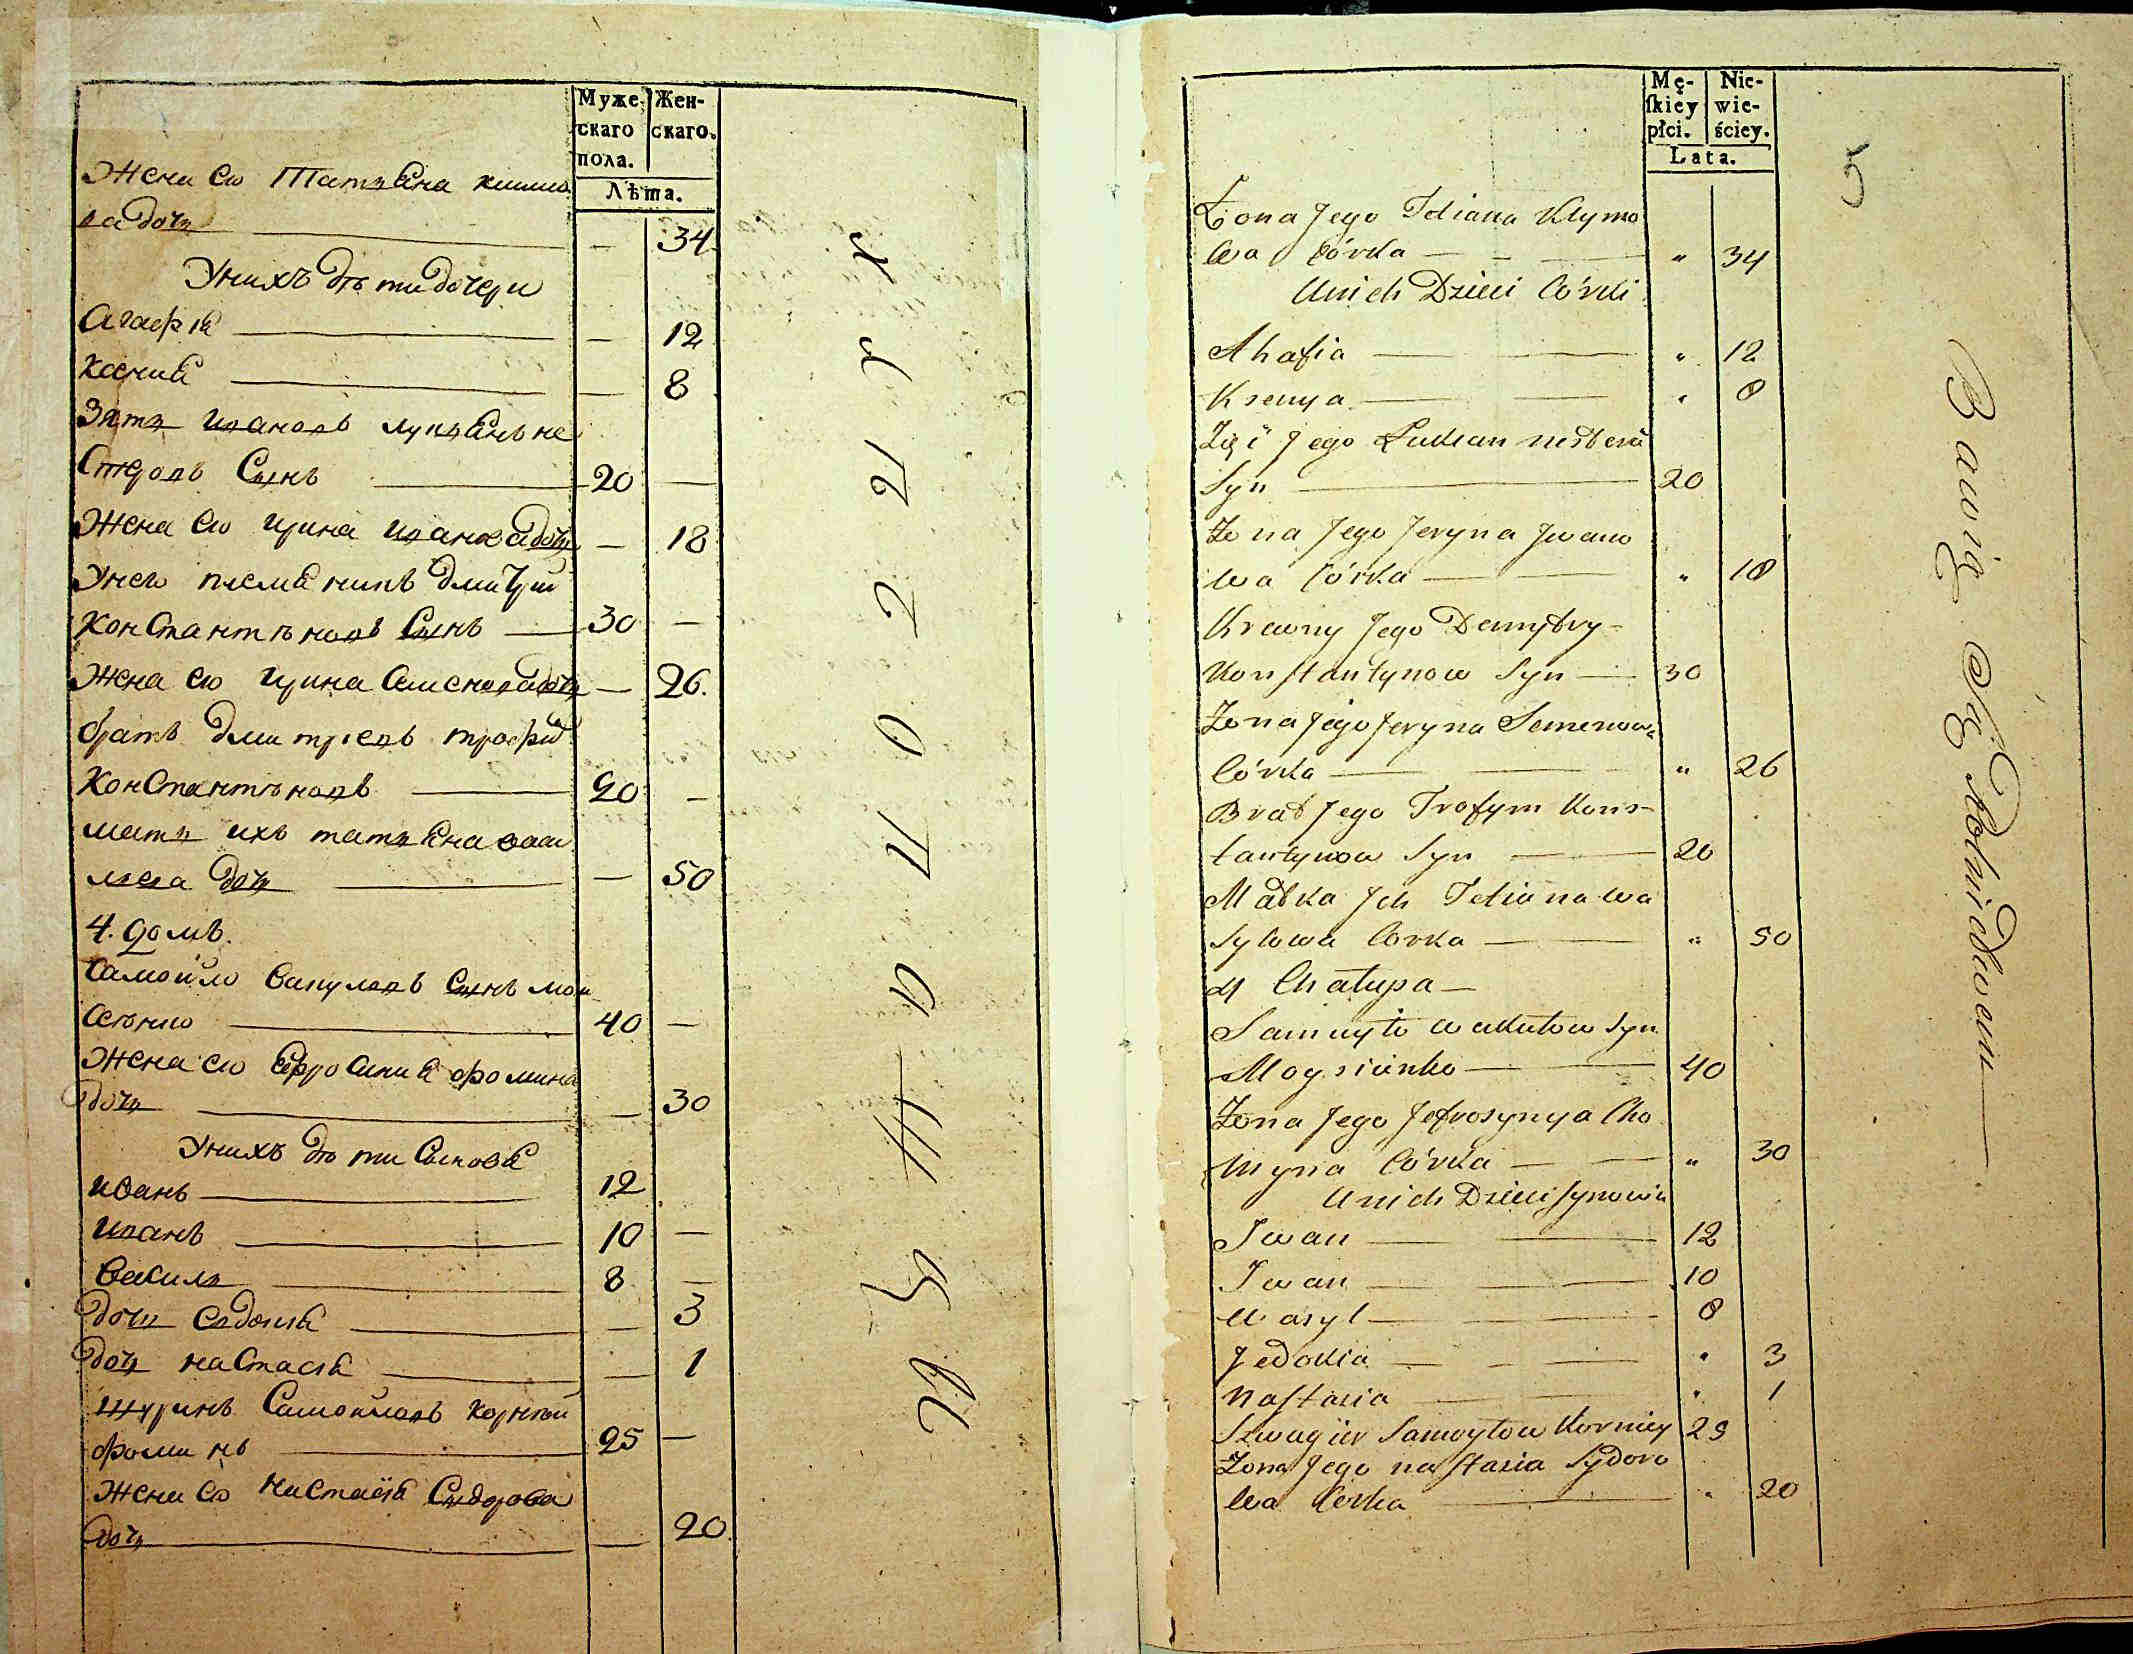 Муже- Жен-
скаго скаго.
пола.
Лѣта.
Жена ею Татьяна климо
ва дочь — 34
Унихъ дѣти дочери
Агафія — 12
Ксения — 8
Зять ивановъ лукьянъ не
стеровъ Сынъ 20 —
Жена ею ирина иванова дочь — 18
Унею племянникъ дмитрий
Константѣновъ Сынъ 30 —
Жена ею ирина Семенова дочь — 26.
братъ дмитріевъ трофим
Константѣновъ 20 —
мать ихъ татьяна васи
лева дочь — 50
4. домъ.
Самойло Вакуловъ Сынъ мои
сеѣнко 40 —
Жена ею Ефросиния фомина
дочь — 30
Унихъ дѣти Сыновя
иванъ 12
иванъ 10 —
Василь 8 —
дочь евдокия — 3
дочь настасія — 1
шуринъ Самойловъ Корнѣй
фоминъ 25 —
Жена ею Настасія Сидорова
дочь — 20.
Mę- Nie-
skiey wie-
płci. ściey.
Lata.
5
Żona Jego Tetiana Klymo
wa Córka — „ 34
Unich Dzieci Córki
Ahafia — „ 12
Ksenya — „ 8
Zięć Jego Łukian nesterów
Syn — 20
Żona Jego Jeryna Jwano
wa Córka — „ 18
Krewny Jego Demytry-
Konstantynow Syn — 30
Żona Jego Jeryna Semenowa
Córka — „ 26
Brat Jego Trofym Kons-
tantynow Syn — 20
Matka Jch Tetiana wa
sylowa Corka — „ 50
4 Chałupa —
Samuyło wakułow Syn
Moysieinko — 40
Żona Jego Jefrosynya Cho
myna Córka — „ 30
Unich Dzieci synowie
Iwan — 12
Iwan — 10
Wasyl — 8
Jedokia — „ 3
Nastasia — „ 1
Szwagier Samoyłow Korniey 25
Żona Jego nastasia Sydoro
wa Corka — „ 20
Bawią Się Rolnictwem